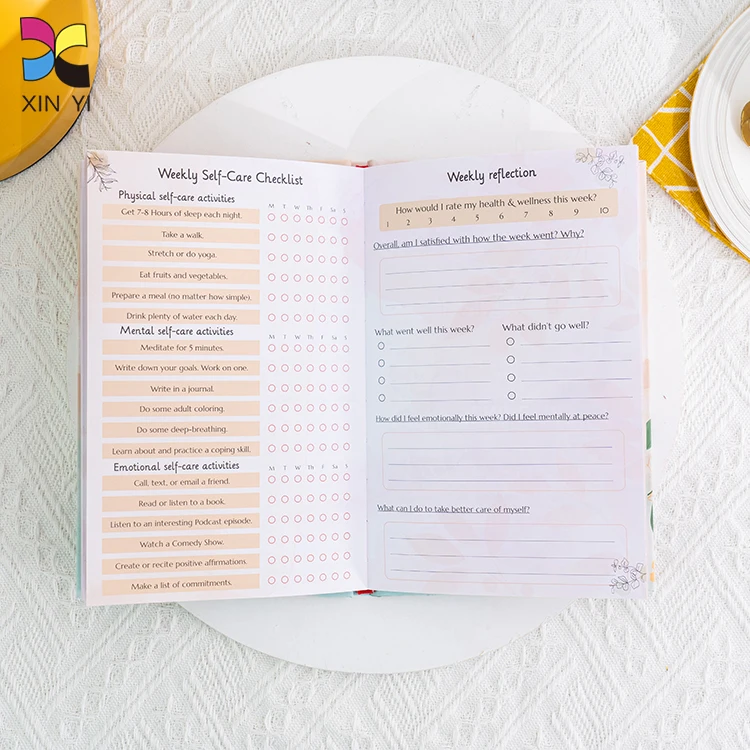 XIN YI
Weekly Self-Care Checklist
Physical self-care activities
M T W Th F S S
Get 7-8 Hours of sleep each night.
Take a walk.
Stretch or do yoga.
Eat fruits and vegetables.
Prepare a meal (no matter how simple).
Drink plenty of water each day.
Mental self-care activities
M T W Th F S S
Meditate for 5 minutes.
Write down your goals. Work on one.
Write in a journal.
Do some adult coloring.
Do some deep-breathing.
Learn about and practice a coping skill.
Emotional self-care activities
M T W Th F S S
Call, text, or email a friend.
Read or listen to a book.
Listen to an interesting Podcast episode.
Watch a Comedy Show.
Create or recite positive affirmations.
Make a list of commitments.
Weekly reflection
How would I rate my health & wellness this week?
1 2 3 4 5 6 7 8 9 10
Overall, am I satisfied with how the week went? Why?
What went well this week?
What didn't go well?
How did I feel emotionally this week? Did I feel mentally at peace?
What can I do to take better care of myself?